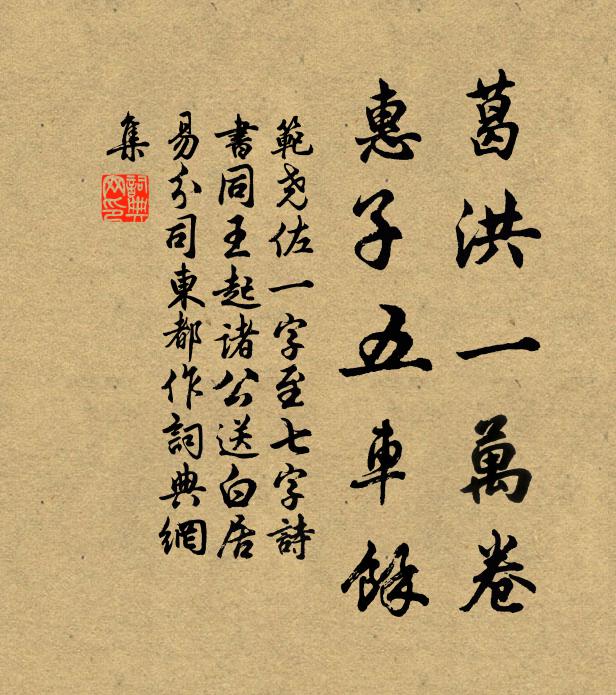 葛洪一萬卷
惠子五車餘
範堯佐一字至七字詩
書同王起諸公送白居
易分司東都作詞典網
集
詞典網印